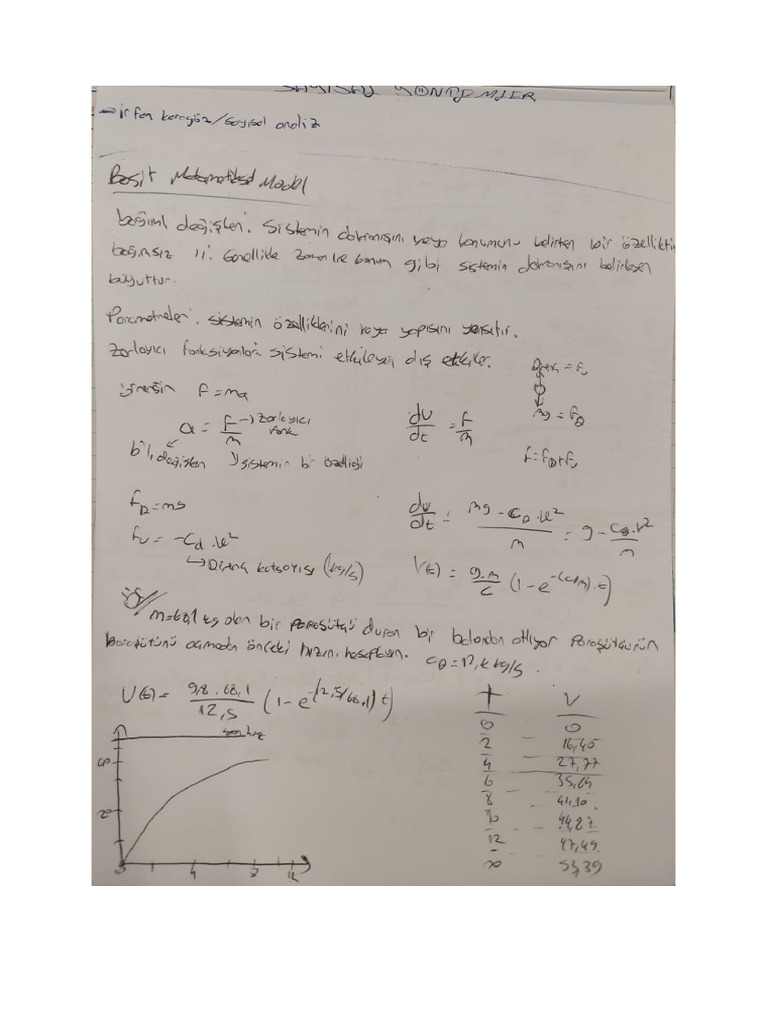 SAYISAL YÖNTEMLER
→ irfan karagöz/sayısal analiz
Basit Matematiksel Model
bağıml değişken: sistemin davranışını veya konumunu belirten bir özelliktir
bağımsız ": Genellikle zaman ve konum gibi sistemin davranışını belirleyen
büyüttür.
Parametreler: sistemin özelliklerini veya yapısını yansıtır.
zorlayıcı fonksiyonlar: sistemi etkileyen dış etkiler.
örneğin F=ma
a = F/m → zorlayıcı fonk
bğlı değişken → sistemin bir özelliği
= Fu
mg = FD
dv/dt = F/m
F=FD+Fu
FD=mg
Fu = -Cd.v²
→ Direnç katsayısı (kg/s)
dv/dt = mg - CD.v²/m = g - CD.v²/m
V(t) = g.m/c (1-e^-(c/m).t)
m=68,1 kg olan bir paraşütçü duran bir balondan atlıyor paraşütçünün
paraşütünü açmadan önceki hızını hesaplayın. CD=12, kg/s.
V(t) = 9,8.68,1/12,5 (1-e^-(12,5/68,1)t)
t V
0 0
2 16,40
4 27,77
6 35,64
8 41,10
10 44,87
12 47,49
∞ 53,39
son hız
40
20
0 4 8 12